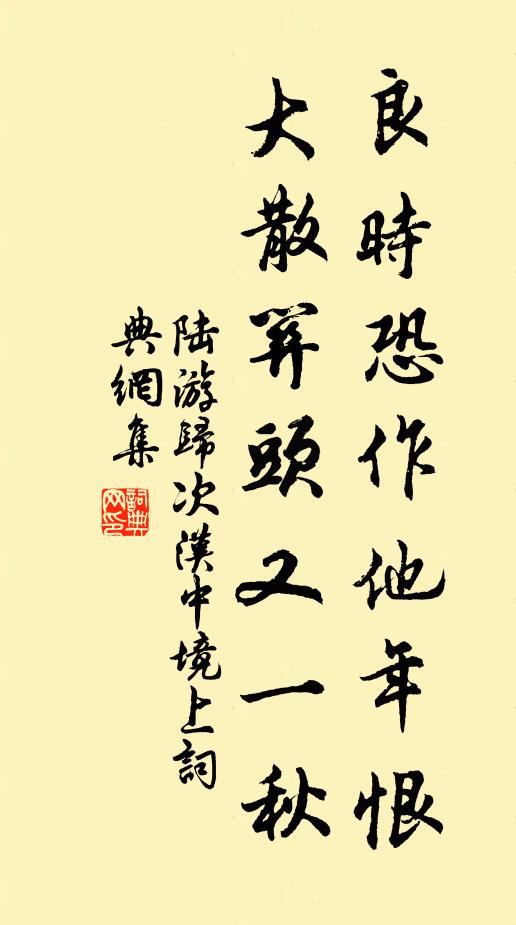 良時恐作他年恨
大散関頭又一秋
陆游歸次漢中境上詞
典網集
詞典网印